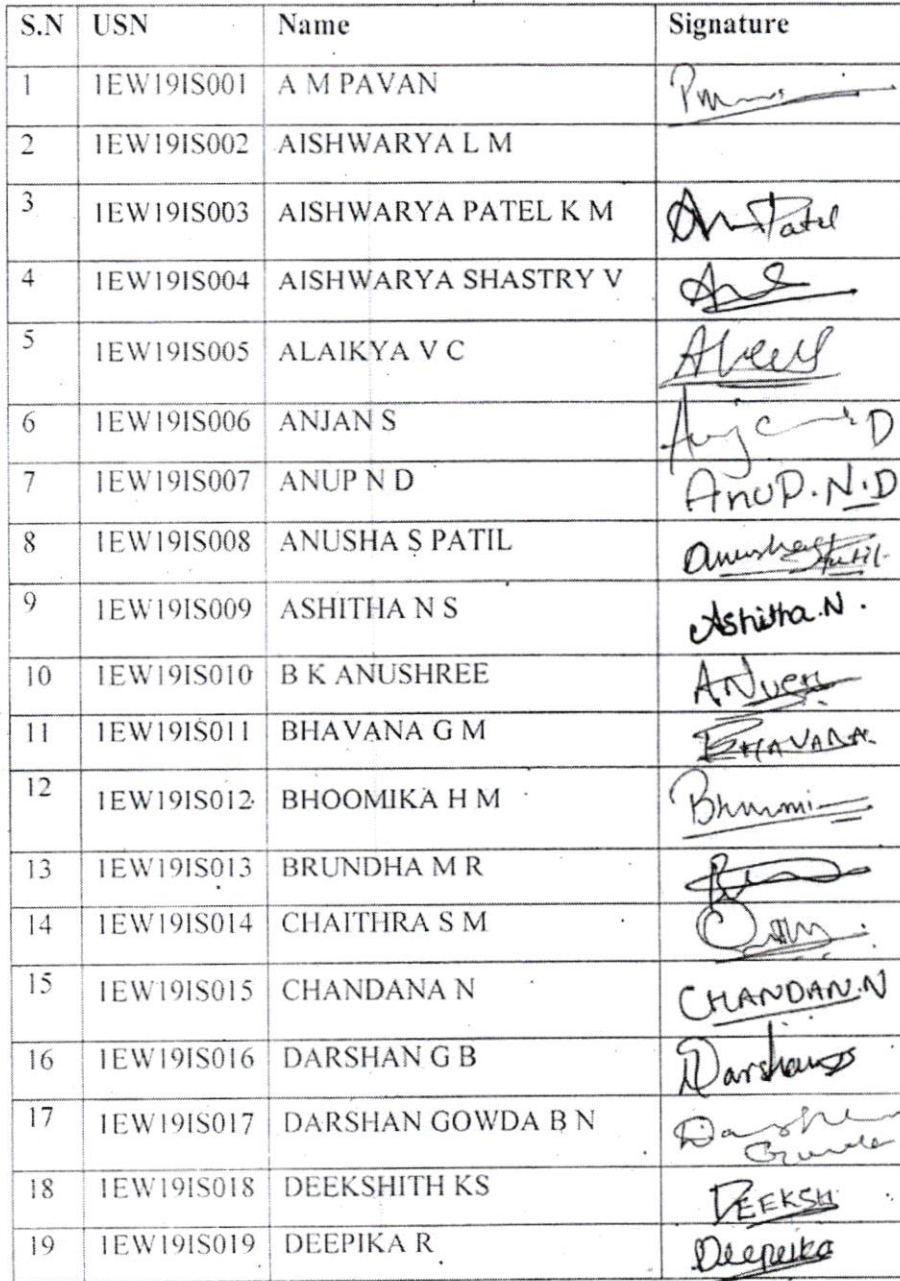 S.N USN Name Signature
1 1EW19IS001 A M PAVAN
2 1EW19IS002 AISHWARYA L M
3 1EW19IS003 AISHWARYA PATEL K M Patel
4 1EW19IS004 AISHWARYA SHASTRY V
5 1EW19IS005 ALAIKYA V C
6 1EW19IS006 ANJAN S
7 1EW19IS007 ANUP N D AnuP.N.D
8 1EW19IS008 ANUSHA S PATIL
9 1EW19IS009 ASHITHA N S Ashitha.N.
10 1EW19IS010 B K ANUSHREE
11 1EW19IS011 BHAVANA G M BHAVANA
12 1EW19IS012 BHOOMIKA H M
13 1EW19IS013 BRUNDHA M R
14 1EW19IS014 CHAITHRA S M
15 1EW19IS015 CHANDANA N CHANDAN.N
16 1EW19IS016 DARSHAN G B
17 1EW19IS017 DARSHAN GOWDA B N
18 1EW19IS018 DEEKSHITH KS DEEKSH
19 1EW19IS019 DEEPIKA R Deepika